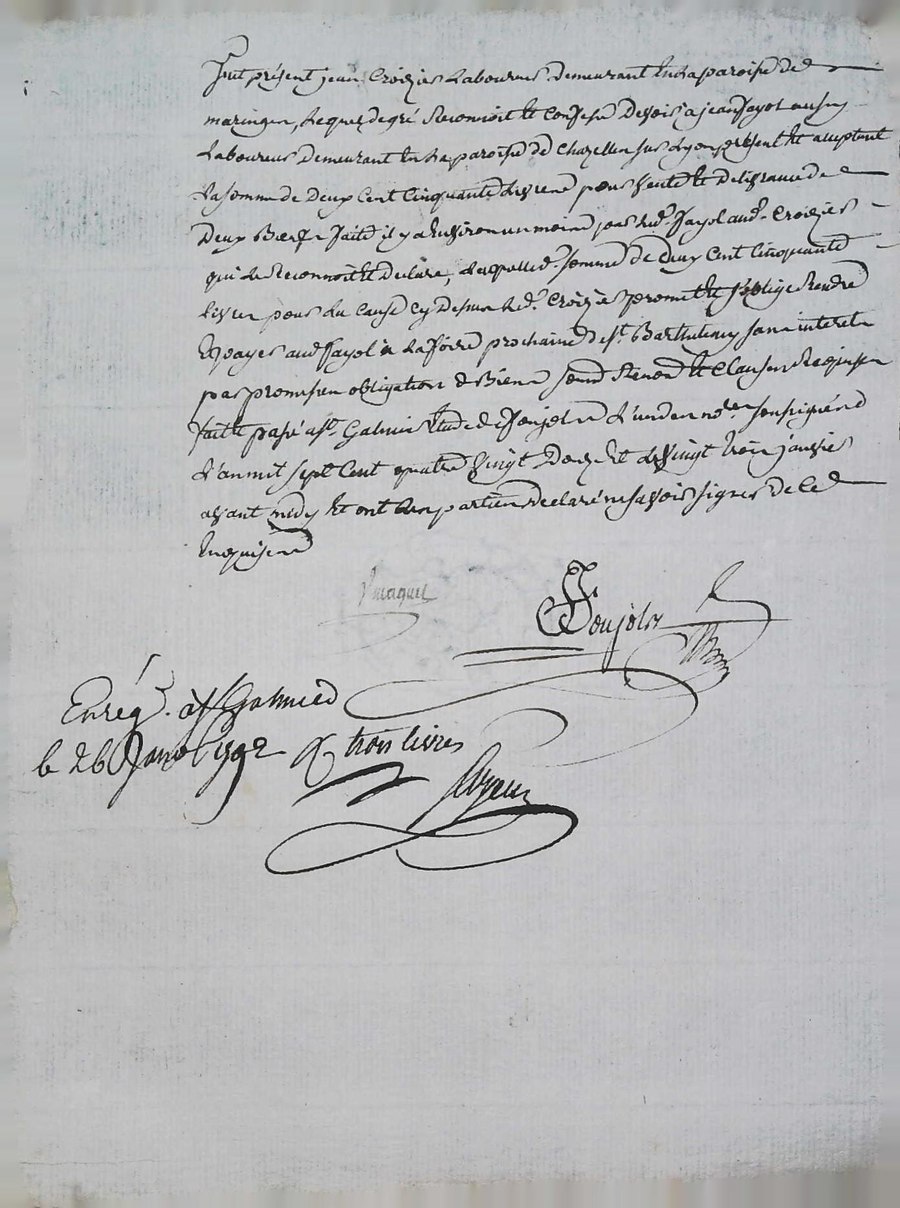 fut présent jean Croizier Laboureur demeurant En La paroisse de
maringes, Lequel de gré Reconnoit Et Confesse Devoir a jean fayol aussy
Laboureur Demeurant En La paroisse de Chazelles sur Lyon présent Et acceptant
La somme de Deux Cent Cinquante Livres pour vente Et Delivrance de
Deux Bœufs faite il y a Environ un moins par Led. fayol aud. Croizier
qui Le Reconnoit Et declare, Laquelle d. somme de deux Cent Cinquante
livres pour du Cause Cy Dessus Led. Croizier promet Et s'oblige Rendre
Et payer aud fayol a La foire prochaine de St. Barthelemy sans interet
par promission obligation de Biens soum Renon Et Clauses Requises
fait Et passé a St. Galmier Etude de Ponjolas L'un des no.res soussignés
L'an mil sept Cent quatre vingt Douze Et Le vingt trois janvier
avant midy Et ont Les parties declaré ne savoir signer de Ce
Enquises
Ponjolas
Enrég. à St Galmier
le 26 Janv 1792 R trois livres